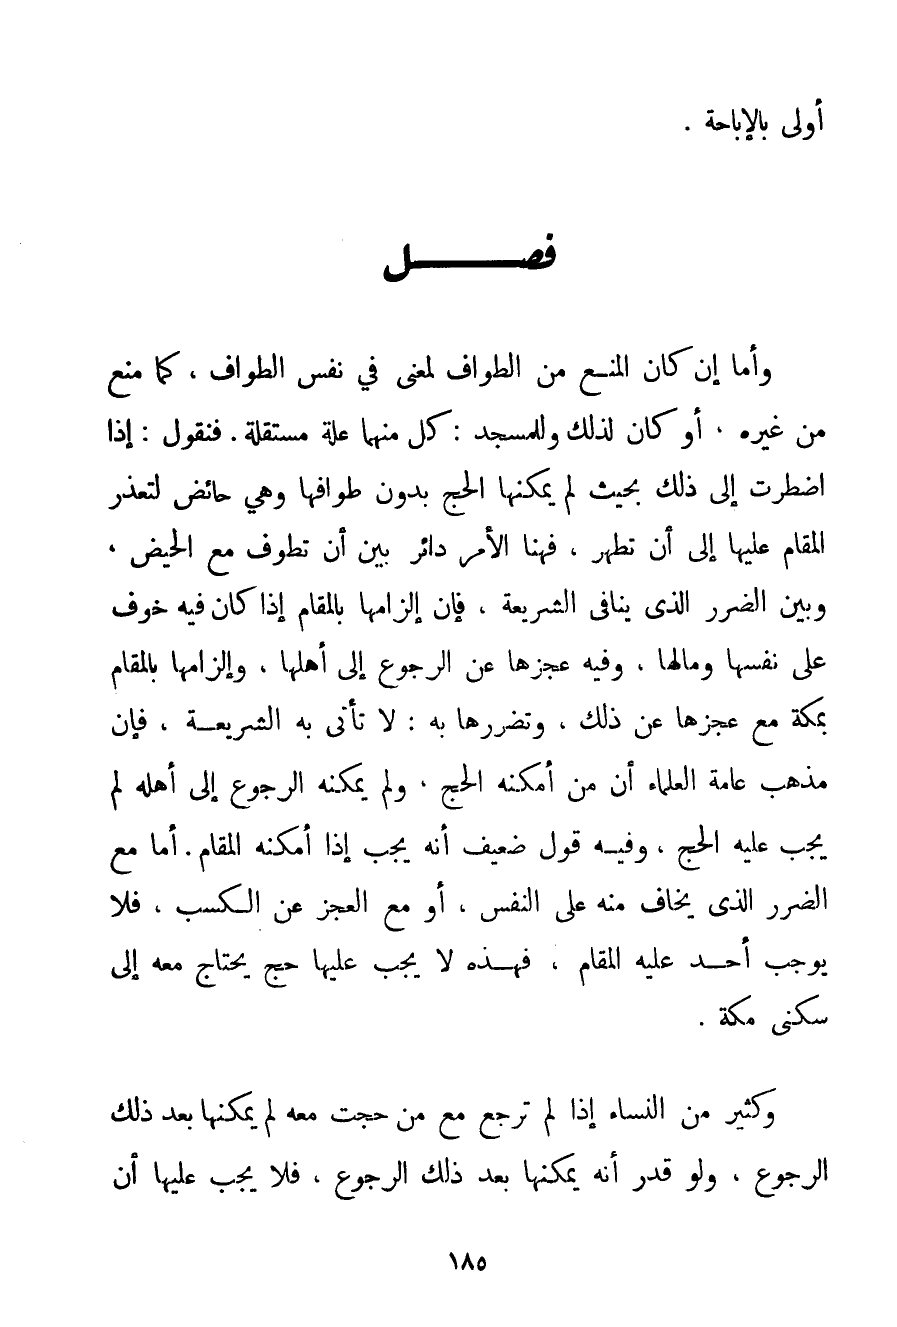 أولى بالإباحة .
فصل
وأما إن كان المنع من الطواف لمعنى في نفس الطواف ، كما منع
من غيره . أو كان لذلك وللمسجد : كل منهما علة مستقلة . فنقول : إذا
اضطرت إلى ذلك بحيث لم يمكنها الحج بدون طوافها وهي حائض لتعذر
المقام عليها إلى أن تطهر ، فهنا الأمر دائر بين أن تطوف مع الحيض .
وبين الضرر الذى ينافى الشريعة ، فإن إلزامها بالمقام إذا كان فيه خوف
على نفسها ومالها ، وفيه عجزها عن الرجوع إلى أهلها ، وإلزامها بالمقام
بمكة مع عجزها عن ذلك ، وتضررها به : لا تأتى به الشريعة ، فإن
مذهب عامة العلماء أن من أمكنه الحج . ولم يمكنه الرجوع إلى أهله لم
يجب عليه الحج ، وفيه قول ضعيف أنه يجب إذا أمكنه المقام . أما مع
الضرر الذى يخاف منه على النفس ، أو مع العجز عن الكسب ، فلا
يوجب أحد عليه المقام ، فهذه لا يجب عليها حج يحتاج معه إلى
سكنى مكة .
وكثير من النساء إذا لم ترجع مع من حجت معه لم يمكنها بعد ذلك
الرجوع ، ولو قدر أنه يمكنها بعد ذلك الرجوع ، فلا يجب عليها أن
١٨٥